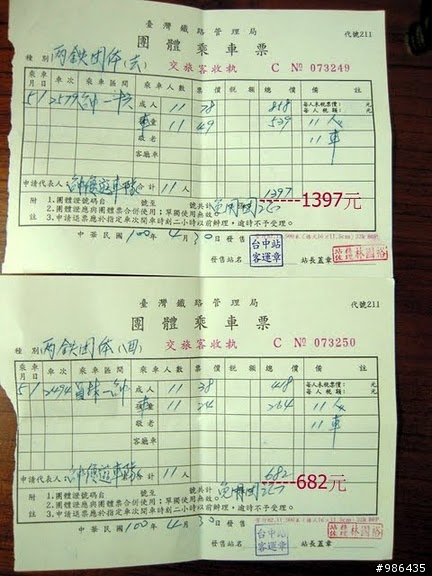 臺灣鐵路管理局
代號211
團體乘車票
種別 兩鐵团体(六)
交旅客收執
C № 073249
乘車月日 車次 乘車區間 乘車人數 票價 稅額 總價 備註
5/1 2579 成人 11 78 每人未稅票價: 元
每人稅額: 元
車 11 49 539 11人
敬老 11車
客廳車
申請代表人: 合計 11人 1397 ------1397元
附註 1.團體證號碼自 號至 號共計
2.團體證應與團體票合併使用;單獨使用無效。
3.申請退票應於指定乘車時刻二小時以前辦理,逾時不予受理。
中華民國100年4月30日發售
發售站名
台中站客運章
站長蓋章
林國裕
臺灣鐵路管理局
代號211
團體乘車票
種別 兩鐵团体(四)
交旅客收執
C № 073250
乘車月日 車次 乘車區間 乘車人數 票價 稅額 總價 備註
5/1 2494 成人 11 38 418 每人未稅票價: 元
每人稅額: 元
車 11 24 264 11人
敬老 11車
客廳車
申請代表人: 合計 11人 682 -----682元
附註 1.團體證號碼自 號至 號共計
2.團體證應與團體票合併使用;單獨使用無效。
3.申請退票應於指定乘車時刻二小時以前辦理,逾時不予受理。
中華民國100年4月30日發售
發售站名
台中站客運章
站長蓋章
林國裕
#986435